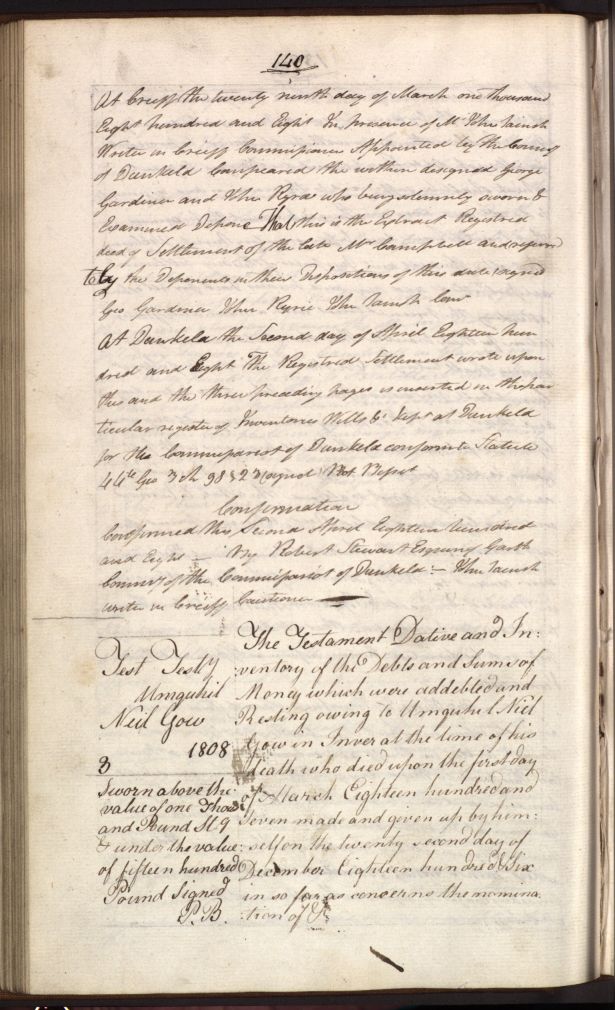 140
At Crieff the twenty ninth day of March one thousand
Eight hundred and Eight In presence of Mr Thos Caush
Writer in Crieff Commissioner Appointed by the Commry
of Dunkeld Compeared the within designed George
Gardiner and who being solemnly sworn &
Examined Depone That this is the Extract Registred
deed of Settlement of the late Mrs Campbell and referred
to by the Deponents in their Depositions of this date signed
Geo Gardiner
At Dunkeld the Second day of April Eighteen hun
dred and Eight The Registred Settlement wrote upon
this and the three preceding pages is inserted in the par
ticular register of Inventories Wills &c kept at Dunkeld
for the Commissariot of Dunkeld conform to Statute
44th Geo 3 Ch 98 § 23 signed
Confirmation
Confirmed this Second April Eighteen hundred
and Eight — By Robert Stewart Esquire of Garth
Commry of the Commissariot of Dunkeld :-
writer in Crieff Cautioner
Test Testy
Umquhil
Neil Gow
1808
3
Sworn above the
value of one Thous
and Pound Stg
& under the value
of fifteen hundred
Pound Signed
P. B.
The Testament Dative and In:
ventory of the Debts and Sums of
Money which were addebted and
Resting owing to Umquhil Neil
Gow in Inver at the time of his
death who died upon the first day
of March Eighteen hundred and
Seven made and given up by him:
:self on the twenty second day of
December Eighteen hundred & Six
in so far as concerns the nomina
:tion of